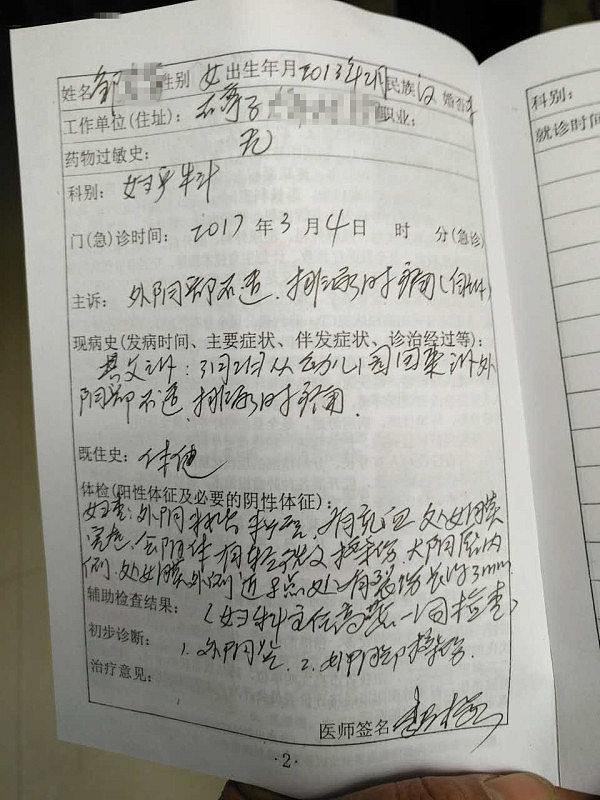 姓名 邹 性别 女 出生年月 2013年2月 民族 汉 婚否
工作单位(住址): 职业:
药物过敏史: 无
科别: 妇产科
门(急)诊时间: 2017 年 3 月 4 日 时 分(急诊)
主诉: 外阴部不适、排尿时疼痛(自诉)
现病史(发病时间、主要症状、伴发症状、诊治经过等):
其父诉: 3月2日从幼儿园回来诉外
阴部不适、排尿时疼痛.
既住史: 体健
体检(阳性体征及必要的阴性体征):
妇查: 外阴 有充血 处女膜
完整. 会阴体有轻微 擦伤 大阴唇内
侧. 处女膜外侧近 点处有裂伤长约3mm
辅助检查结果: (妇科主任 一同检查)
初步诊断: 1. 外阴炎. 2. 外阴部擦伤.
治疗意见:
医师签名
·2·
科别:
就诊时间